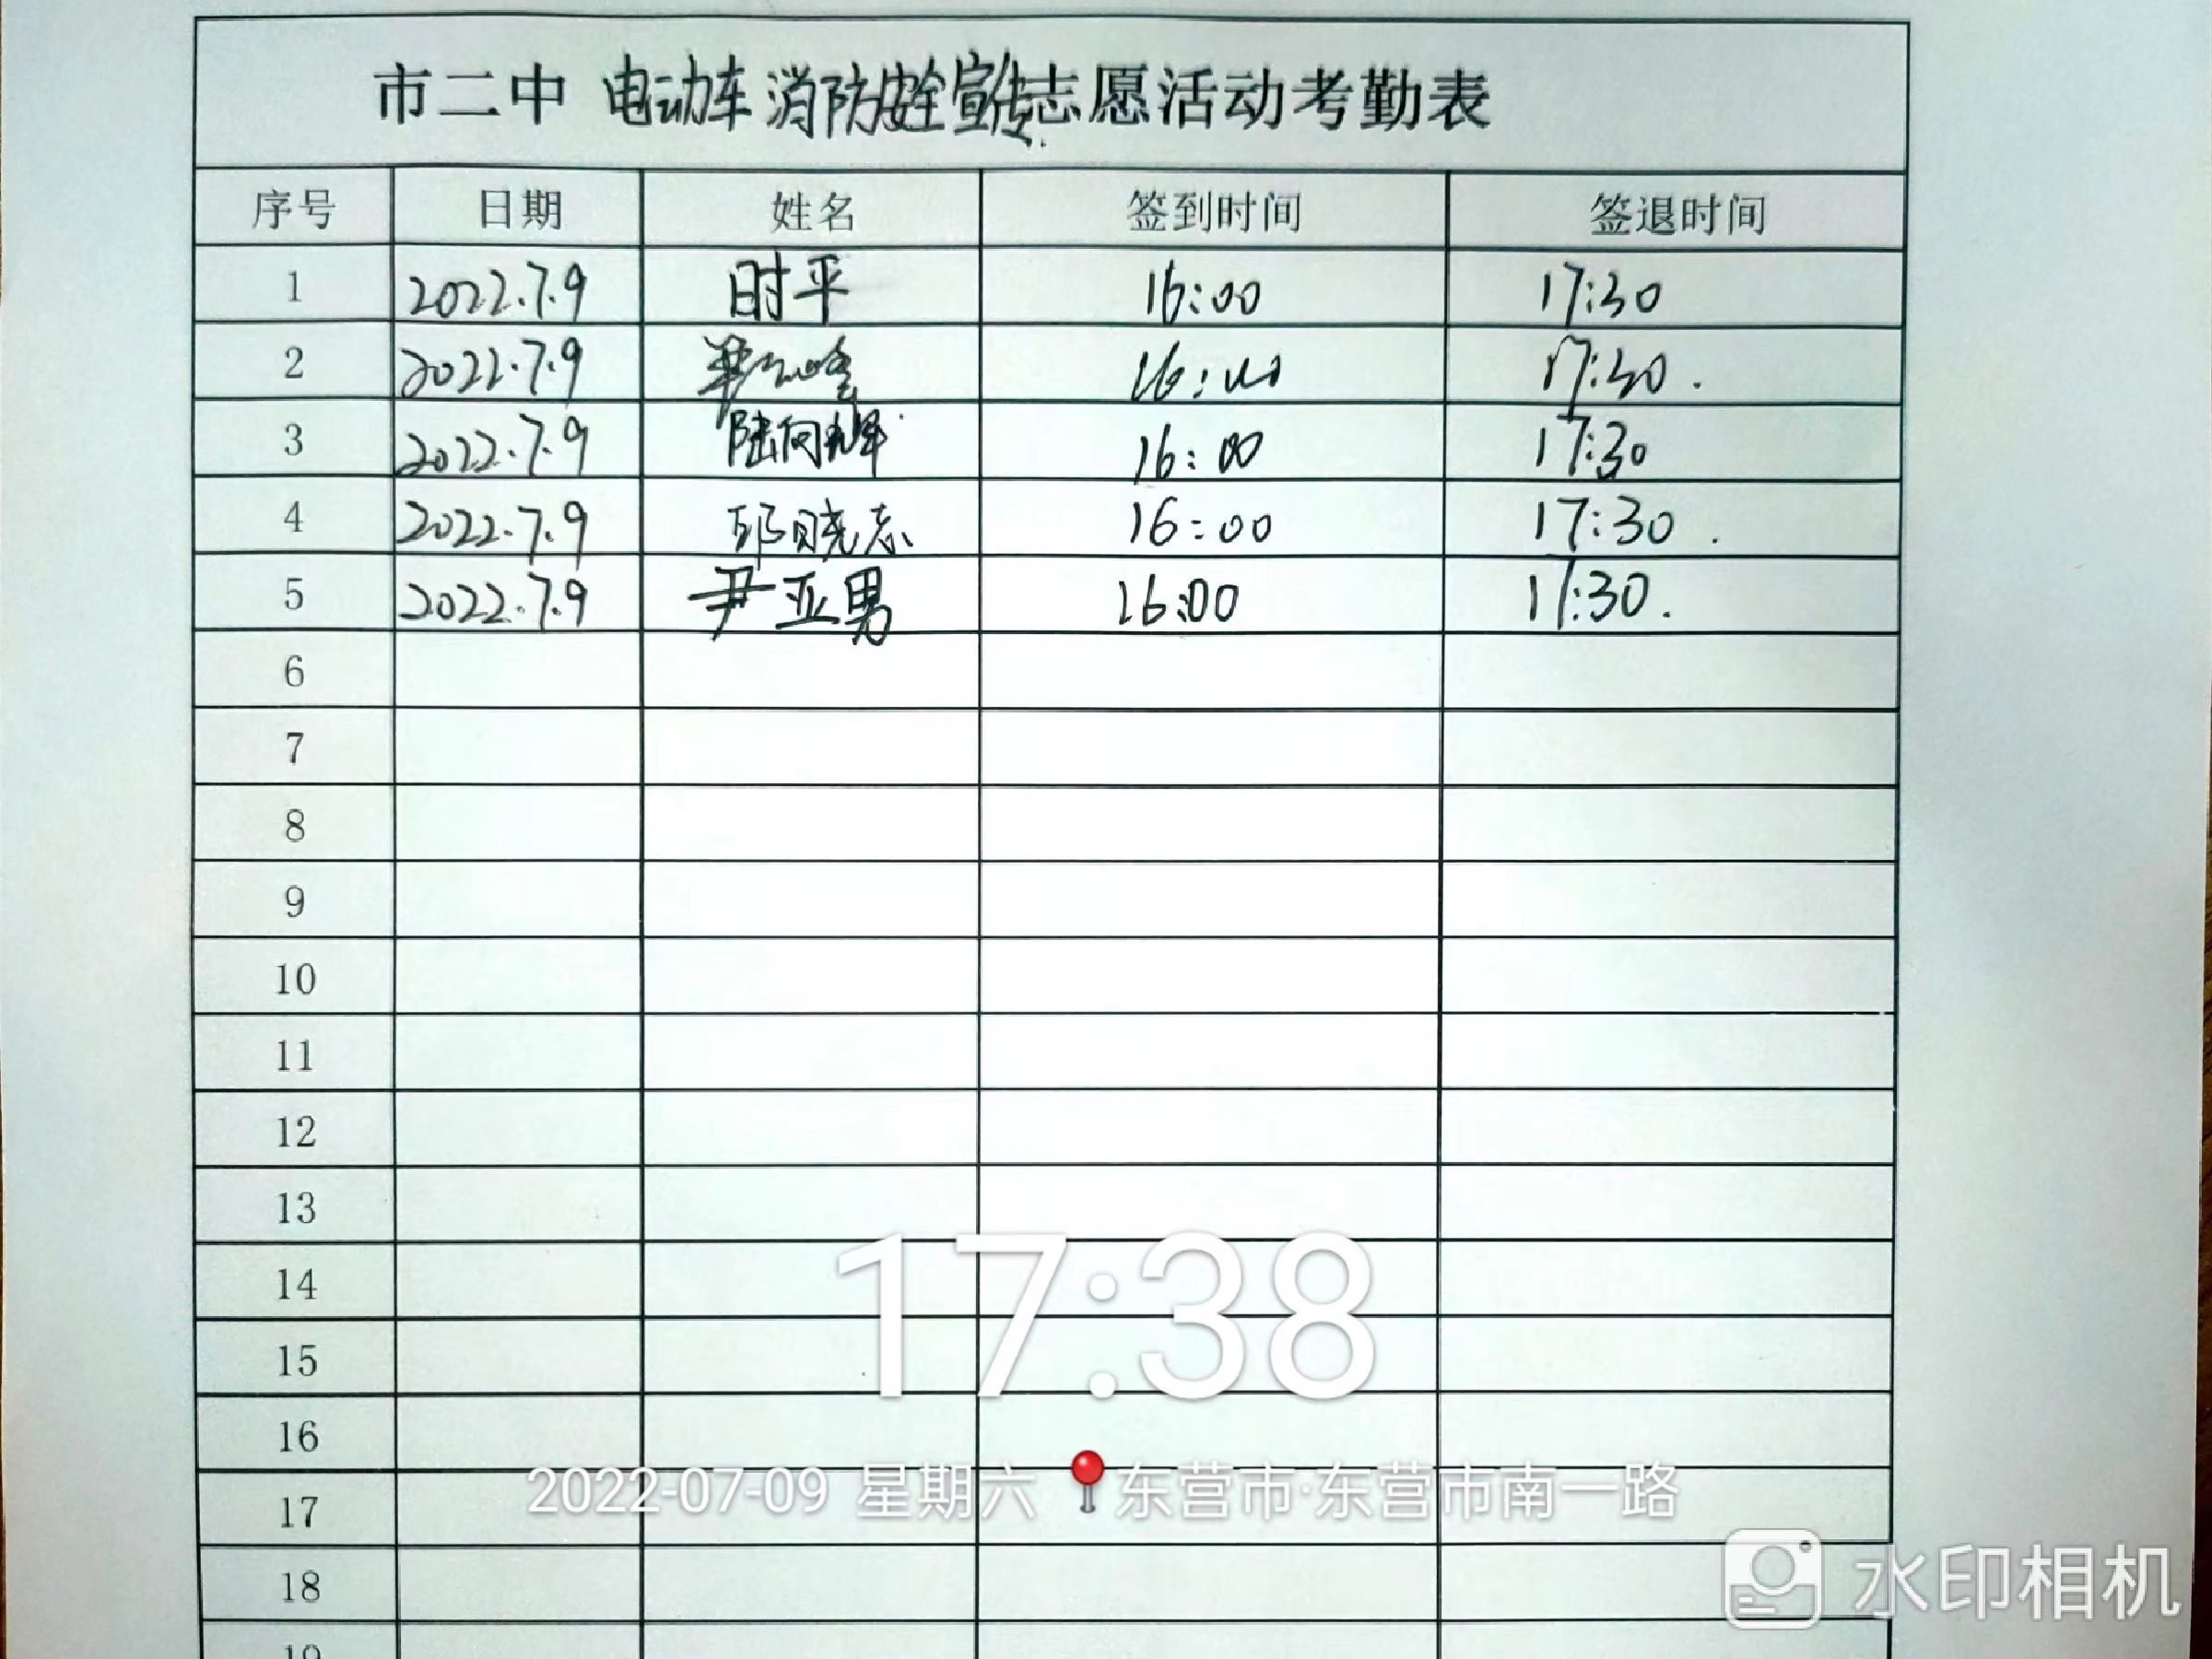 市二中 电动车消防安全宣传志愿活动考勤表
序号 日期 姓名 签到时间 签退时间
1 2022.7.9 时平 16:00 17:30
2 2022.7.9 16:00 17:30.
3 2022.7.9 陆向辉 16:00 17:30
4 2022.7.9 邱晓志 16:00 17:30.
5 2022.7.9 尹亚男 16:00 17:30.
6
7
8
9
10
11
12
13
14
17:38
15
16
2022-07-09 星期六 东营市·东营市南一路
17
水印相机
18
19